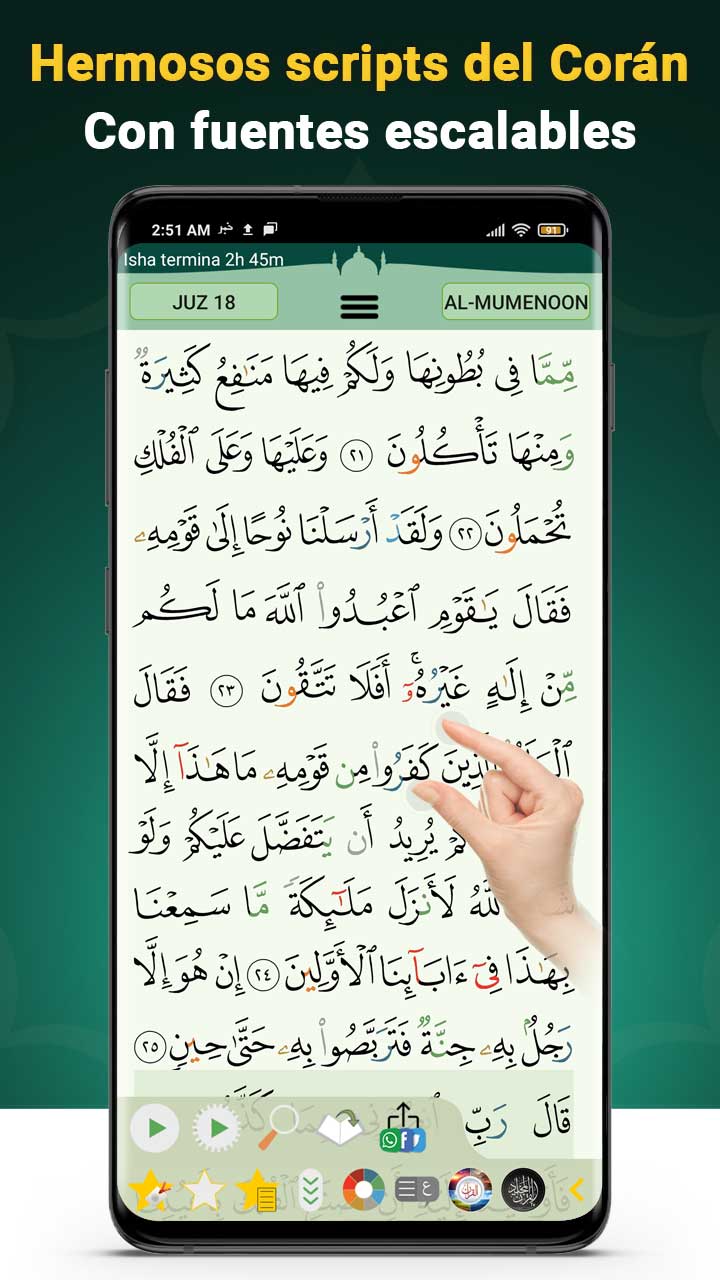 Hermosos scripts del Corán
Con fuentes escalables
2:51 AM خبر 91
Isha termina 2h 45m
JUZ 18
AL-MUMENOON
مِّمَّا فِى بُطُونِهَا وَلَكُمْ فِيهَا مَنَٰفِعُ كَثِيرَةٌ
وَمِنْهَا تَأْكُلُونَ ٢١ وَعَلَيْهَا وَعَلَى ٱلْفُلْكِ
تُحْمَلُونَ ٢٢ وَلَقَدْ أَرْسَلْنَا نُوحًا إِلَىٰ قَوْمِهِۦ
فَقَالَ يَٰقَوْمِ ٱعْبُدُوا۟ ٱللَّهَ مَا لَكُم
مِّنْ إِلَٰهٍ غَيْرُهُۥٓ ۚ أَفَلَا تَتَّقُونَ ٢٣ فَقَالَ
كَفَرُوا۟ مِن قَوْمِهِۦ مَا هَٰذَآ إِلَّا
يُرِيدُ أَن يَتَفَضَّلَ عَلَيْكُمْ وَلَوْ
لَأَنزَلَ مَلَٰٓئِكَةً مَّا سَمِعْنَا
بِهَٰذَا فِىٓ ءَابَآئِنَا ٱلْأَوَّلِينَ ٢٤ إِنْ هُوَ إِلَّا
رَجُلٌۢ بِهِۦ جِنَّةٌ فَتَرَبَّصُوا۟ بِهِۦ حَتَّىٰ حِينٍ ٢٥
قَالَ رَبِّ